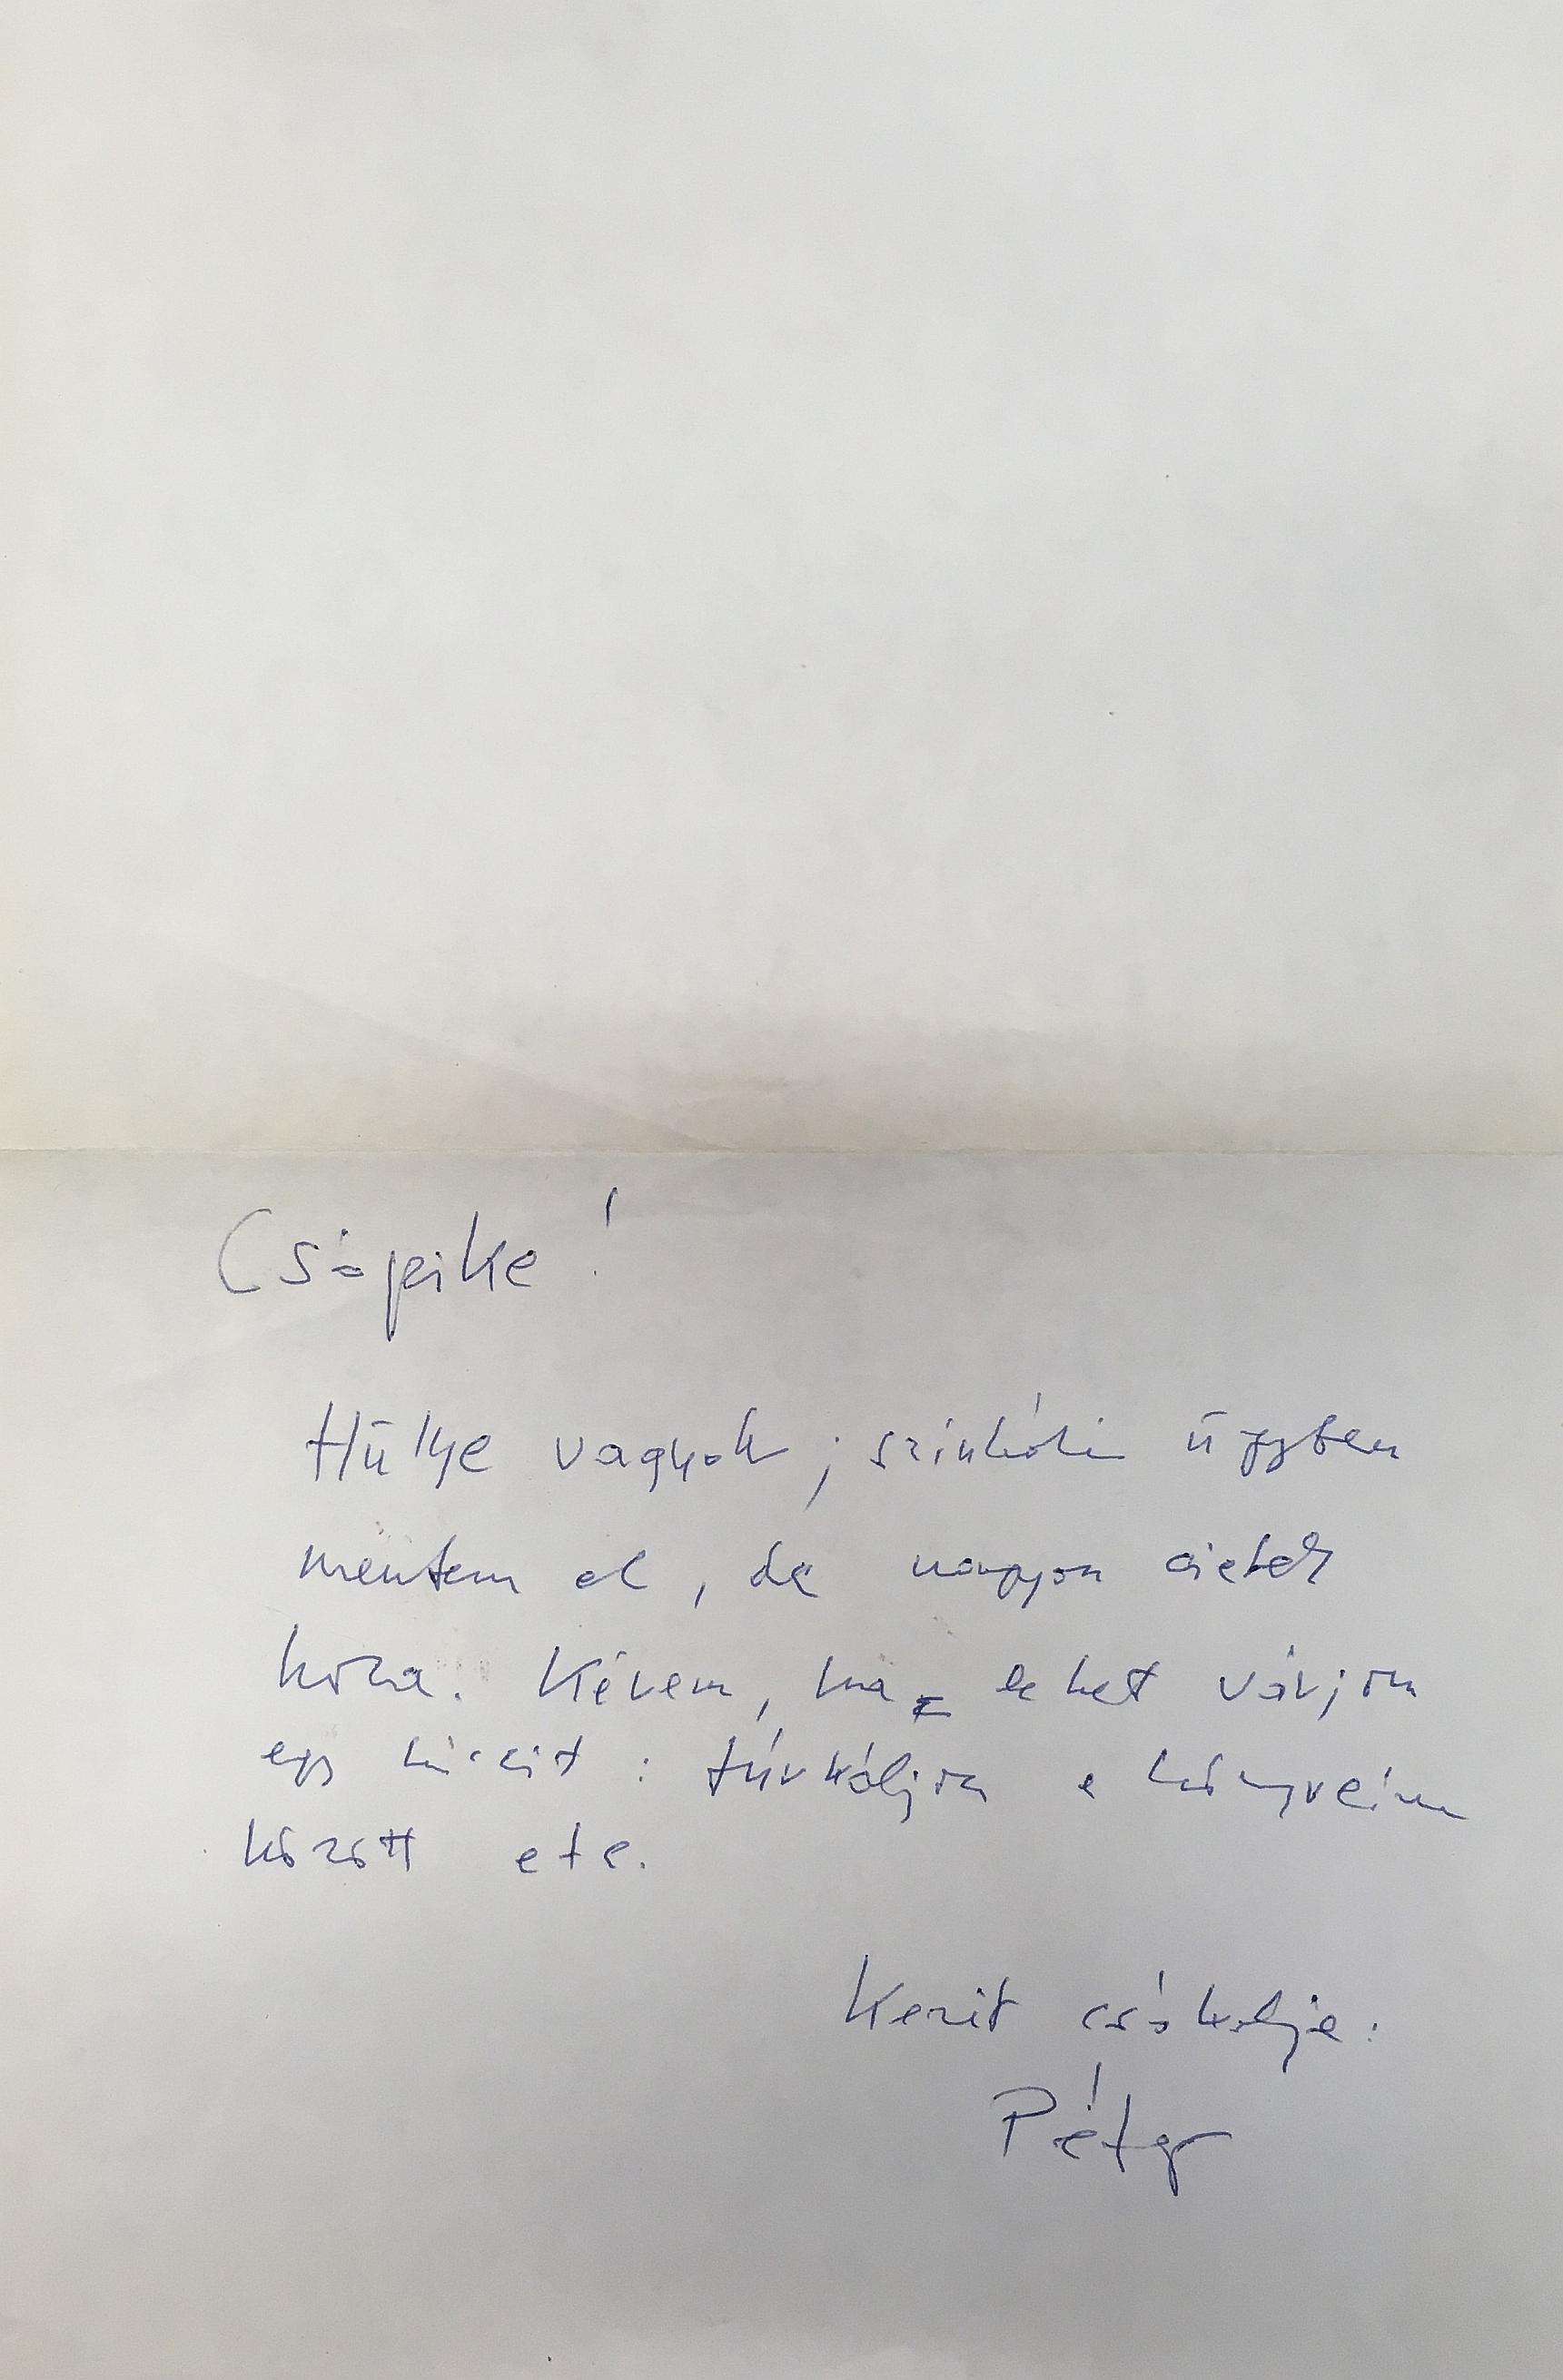 Csöpike!
Hülye vagyok; színházi ügyben
mentem el, de nagyon sietek
haza. Kérem, ha lehet várjon
egy kicsit: túrkáljon a könyveim
között etc.
Kezit csókolja:
Péter